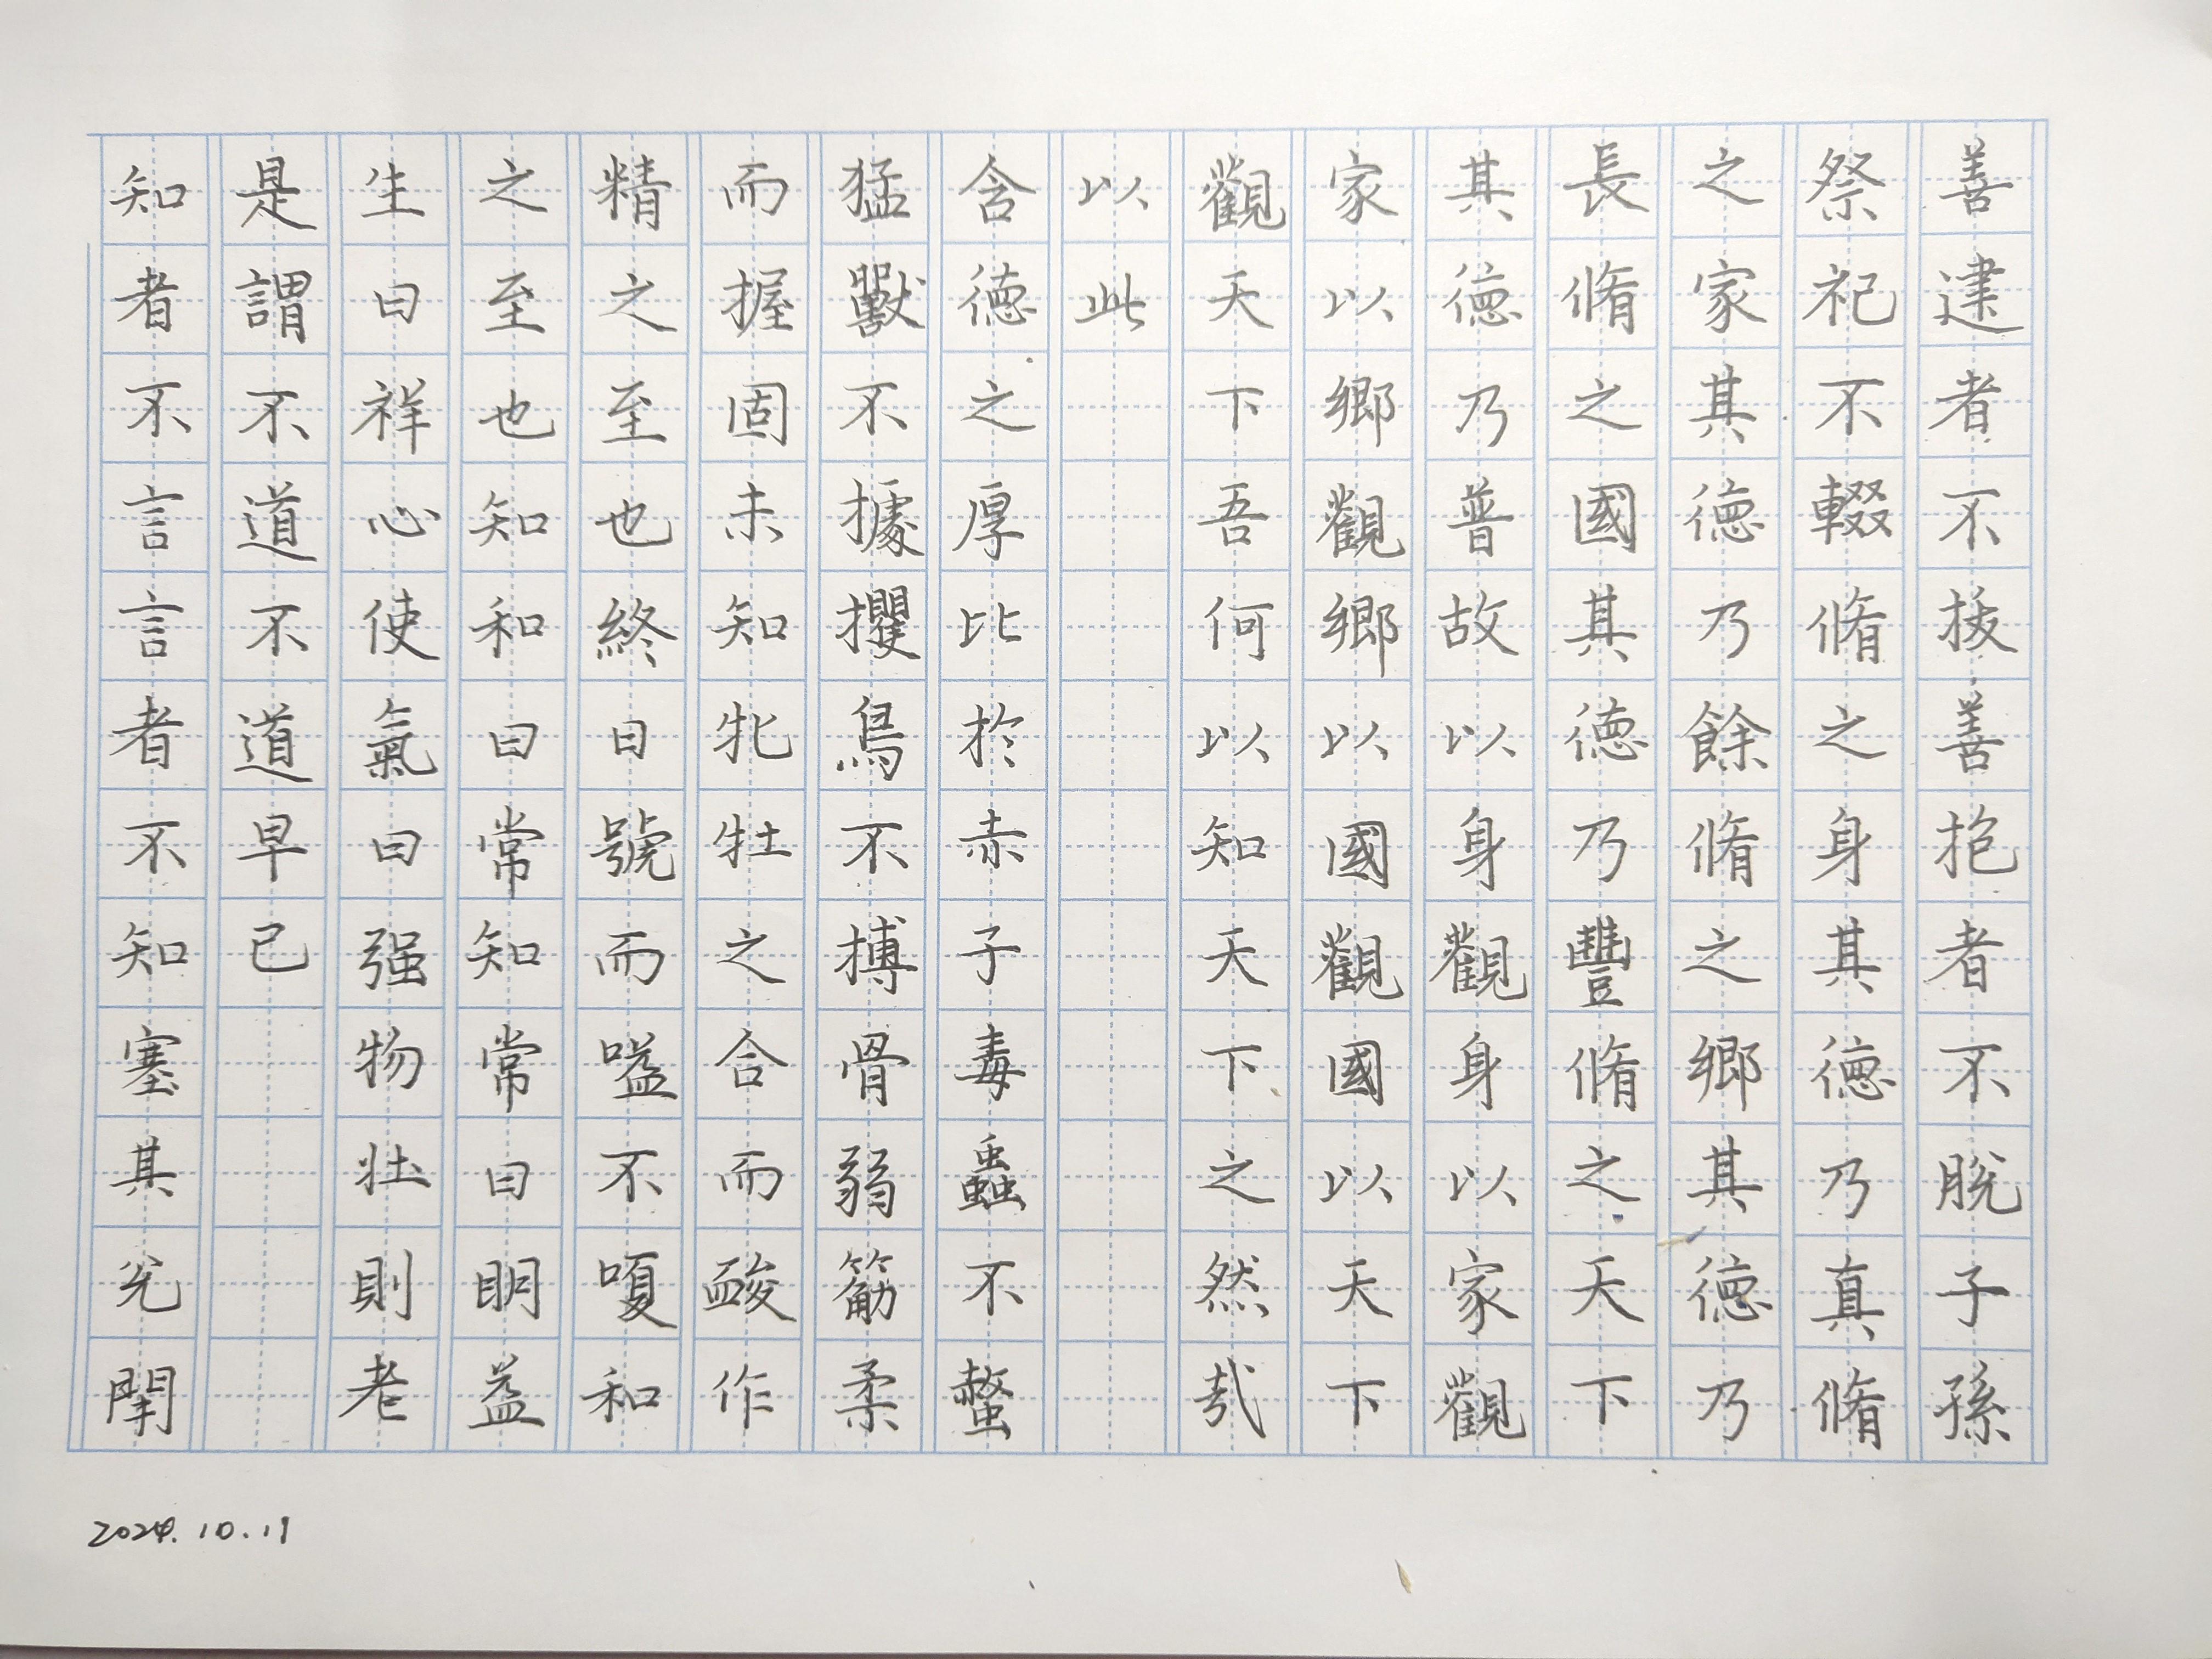 善建者不拔善抱者不脫子孫
祭祀不輟脩之身其德乃真脩
之家其德乃餘脩之鄉其德乃
長脩之國其德乃豐脩之天下
其德乃普故以身觀身以家觀
家以鄉觀鄉以國觀國以天下
觀天下吾何以知天下之然哉
以此
含德之厚比於赤子毒蟲不螫
猛獸不據攫鳥不搏骨弱筋柔
而握固未知牝牡之合而朘作
精之至也終日號而嗌不嗄和
之至也知和曰常知常曰明益
生曰祥心使氣曰强物壯則老
是謂不道不道早已
知者不言言者不知塞其兌閈
2024.10.11